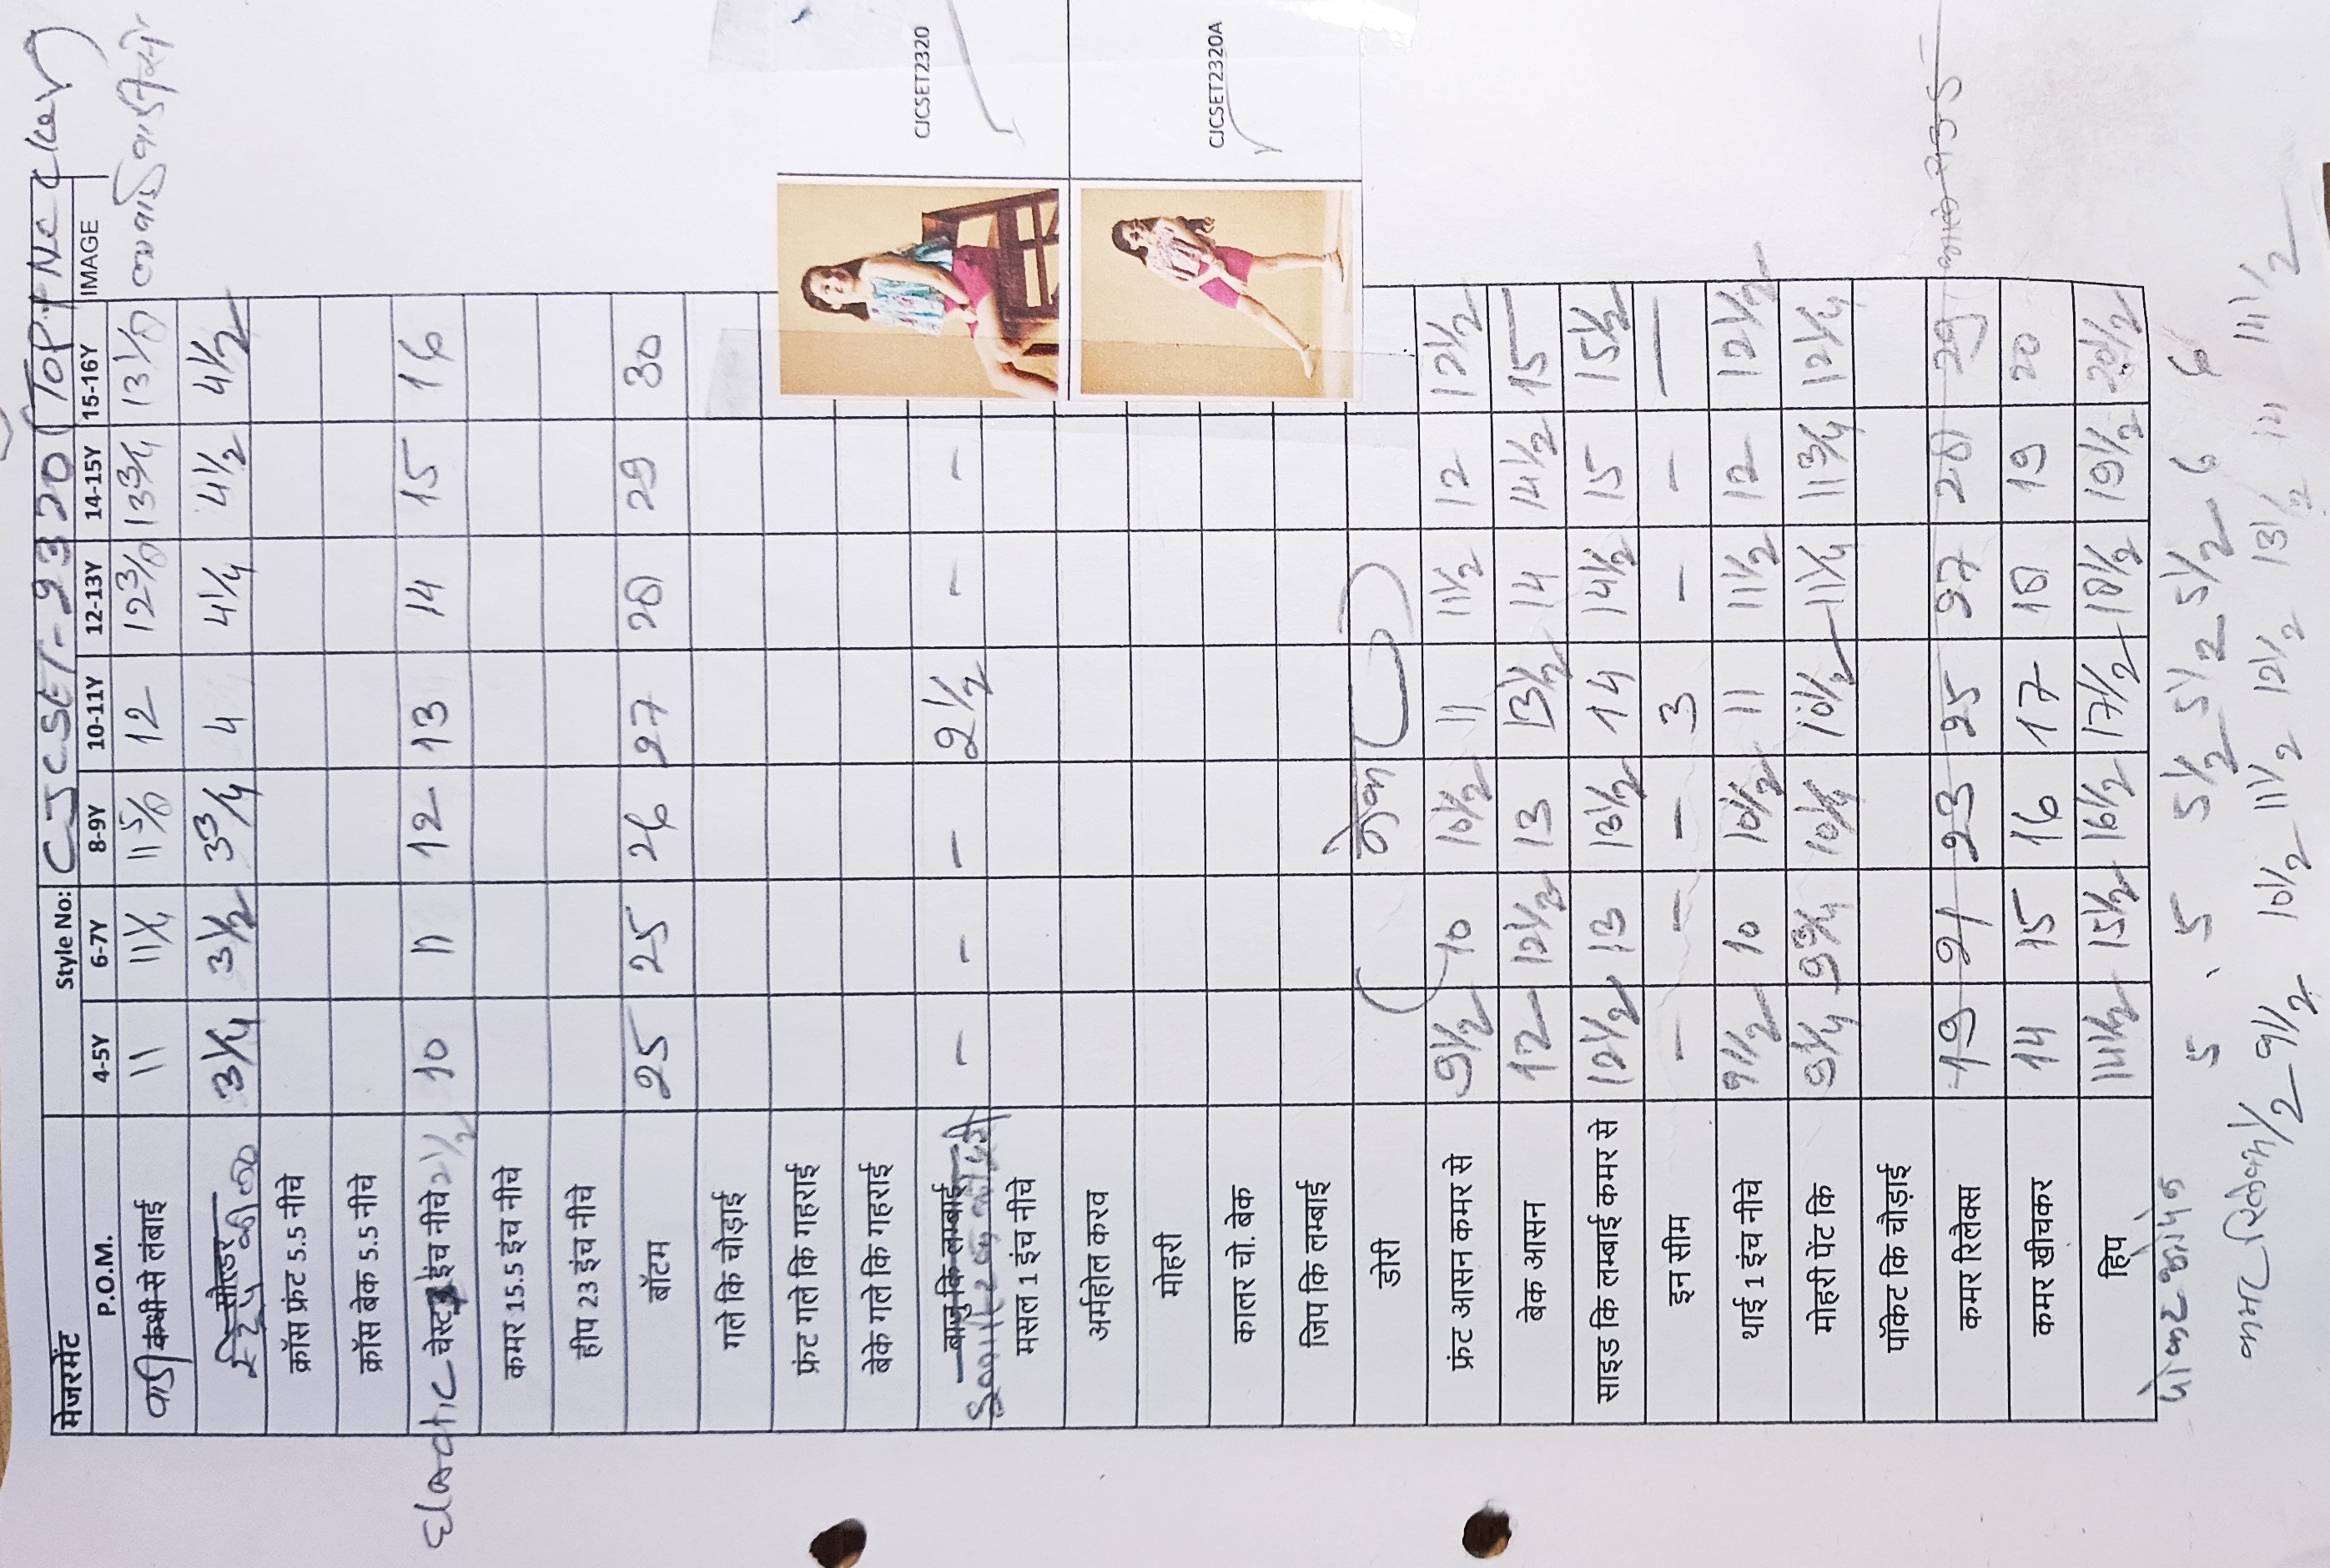 मेजरमेंट Style No: CJCSET-2320 (TOP+NC
P.O.M. 4-5Y 6-7Y 8-9Y 10-11Y 12-13Y 14-15Y 15-16Y IMAGE
कंधी से लंबाई 11 11 1/4 11 5/8 12 12 3/8 13 3/4 13 1/8
सोल्डर 3 1/4 3 1/2 3 3/4 4 4 1/4 4 1/2 4 1/2
क्रॉस फ्रंट 5.5 नीचे
क्रॉस बेक 5.5 नीचे
Elastic चेस्ट इंच नीचे 2 1/2 10 11 12 13 14 15 16
कमर 15.5 इंच नीचे
हीप 23 इंच नीचे
बॉटम 25 25 26 27 28 29 30
गले कि चौड़ाई
फ्रंट गले कि गहराई
बेके गले कि गहराई
बाजु कि लम्बाई - - - 2 1/2 - -
मसल 1 इंच नीचे
अर्महोल करव
मोहरी
कालर चो. बेक
जिप कि लम्बाई
डोरी
फ्रंट आसन कमर से 9 1/2 10 10 1/2 11 11 1/2 12 12 1/2
बेक आसन 12 12 1/2 13 13 1/2 14 14 1/2 15
साइड कि लम्बाई कमर से 12 1/2 13 13 1/2 14 14 1/2 15 15 1/2
इन सीम - - - 3 - - -
थाई 1 इंच नीचे 9 1/2 10 10 1/2 11 11 1/2 12 12 1/2
मोहरी पेंट कि 9 1/4 9 3/4 10 1/4 10 1/2 11 1/4 11 3/4 12 1/4
पॉकेट कि चौड़ाई
कमर रिलैक्स 19 21 23 25 27 28 29
कमर खीचकर 14 15 16 17 18 19 20
हिप 14 1/2 15 1/2 16 1/2 17 1/2 18 1/2 19 1/2 20 1/2
5 5 5 1/2 5 1/2 5 1/2 6 6
कमर रिलेक्स 1/2 9 1/2 10 1/2 11 1/2 12 1/2 13 1/2 14 14 1/2
CJCSET2320
CJCSET2320A